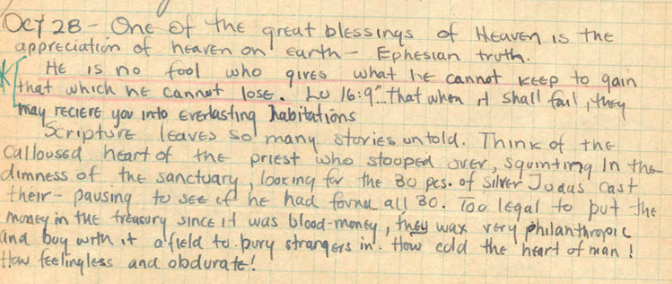 Oct 28 - One of the great blessings of Heaven is the
appreciation of heaven on earth - Ephesian truth.
He is no fool who gives what he cannot keep to gain
that which he cannot lose. Lu 16:9 "..that when it shall fail, they
may recieve you into everlasting habitations
Scripture leaves so many stories untold. Think of the
calloused heart of the priest who stooped over, squinting in the
dimness of the sanctuary, looking for the 30 pcs. of silver Judas cast
their - pausing to see if he had found all 30. Too legal to put the
money in the treasury since it was blood-money, they wax very philanthropic
and buy with it a field to bury strangers in. How cold the heart of man!
How feelingless and obdurate!